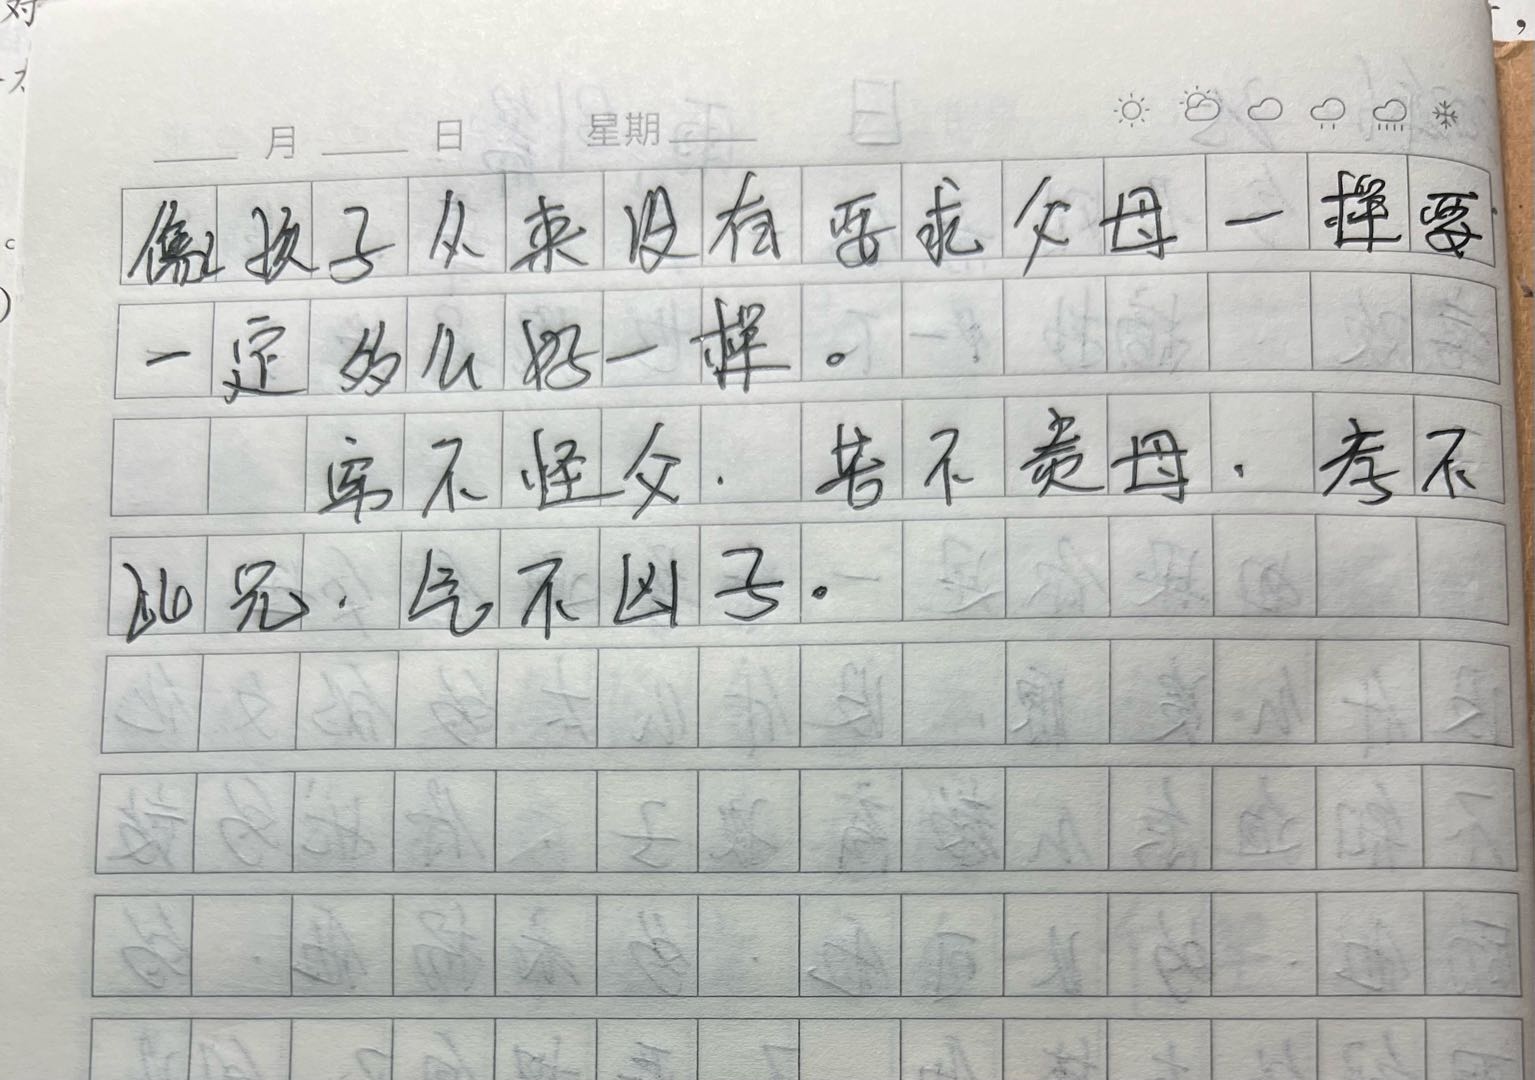 月 日 星期
像孩子从来没有要求父母一样要
一定多么好一样。
穷不怪父.苦不责母.孝不
比兄.气不凶子。